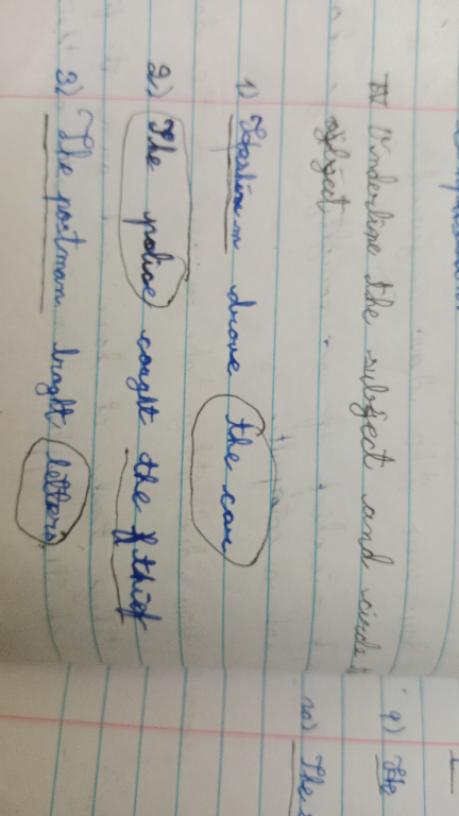 IV Underline the subject and circle
object
1) drove the car
2) The police caught the thief
3) The postman braght letters.
9) The
10) The